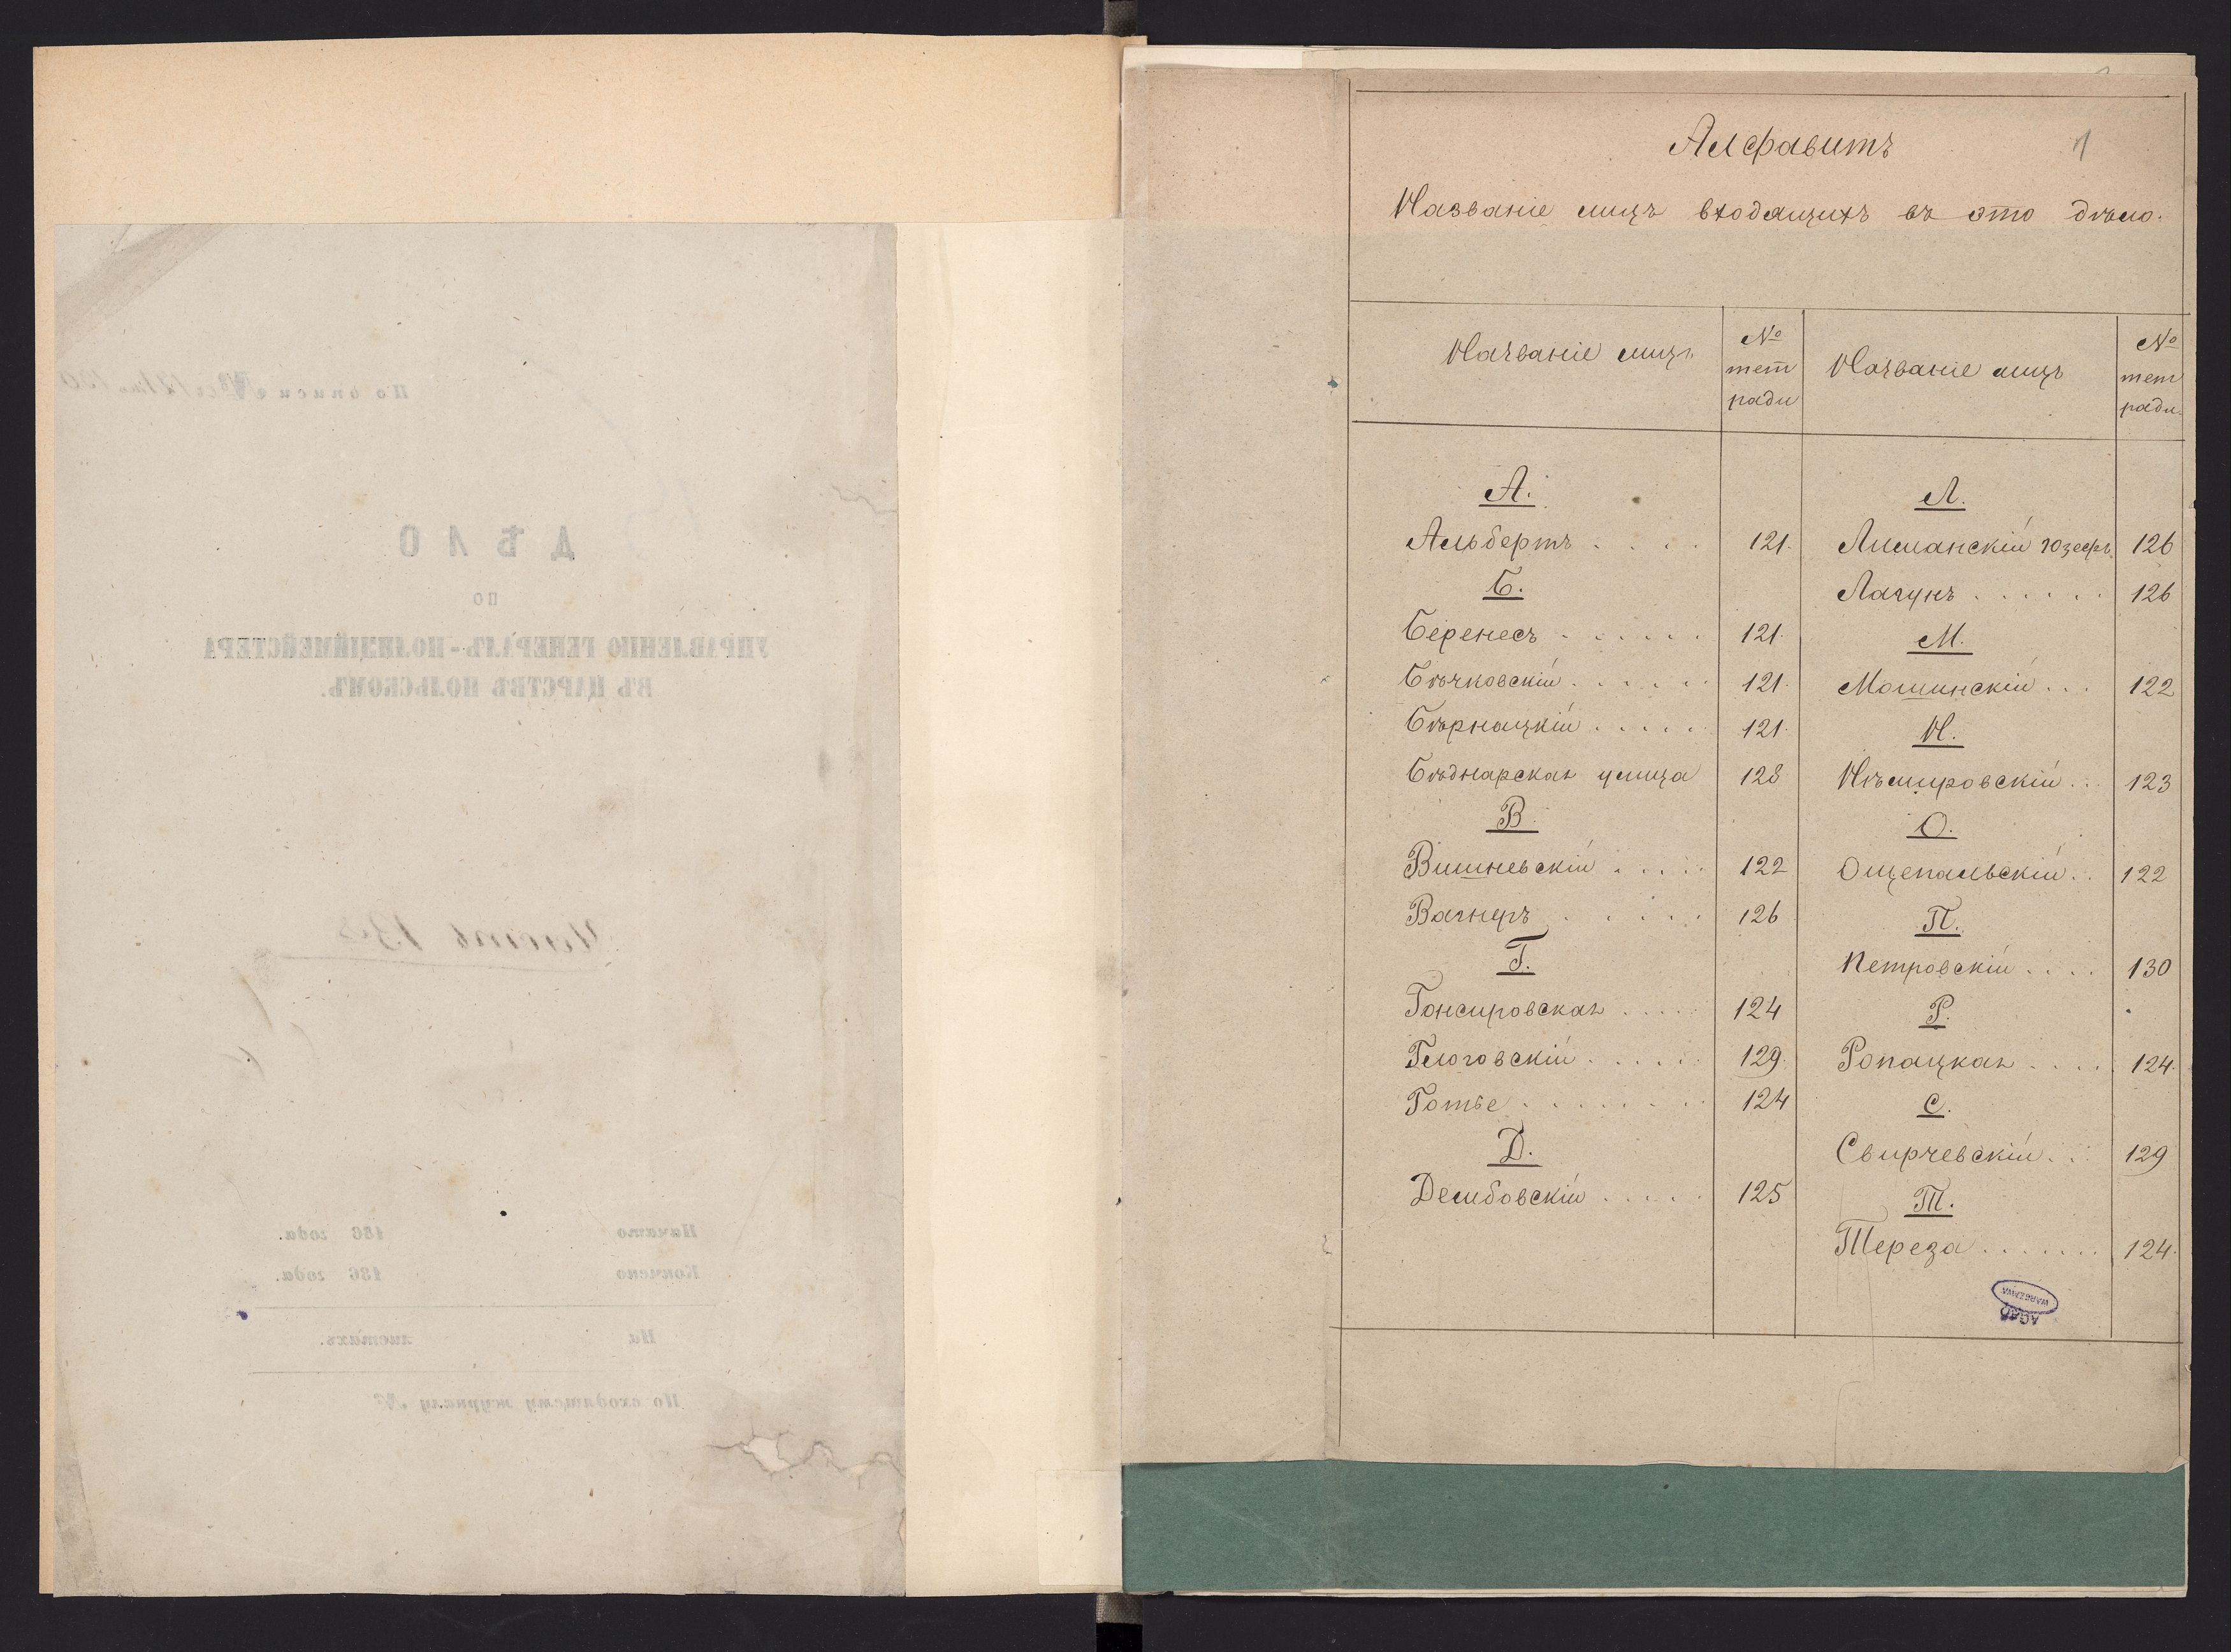 По описи №
ДѢЛО
ПО
УПРАВЛЕНІЮ ГЕНЕРАЛЪ-ПОЛИЦІЙМЕЙСТЕРА
ВЪ ЦАРСТВѢ ПОЛЬСКОМЪ.
Часть 13
Начато 186 года.
Кончено 186 года.
На листахъ.
По входящему журналу №
Алфавитъ
1
Названіе лицъ входящихъ въ это дѣло.
Названіе лицъ № тетради Названіе лицъ № тетради.
А.
Альбертъ . . . . 121.
Б.
Беренесъ . . . . . 121.
Бѣчковскій . . . . . 121.
Бѣрнацкій . . . . . 121.
Бѣднарская улица 128
В.
Вишневскій . . . . . 122
Вагнеръ . . . . . 126
Г.
Гонсировская . . . . . 124
Глоговскій . . . . . 129.
Готье . . . . . . . 124
Д.
Дембовскій . . . . . 125
Л.
Лиманскій Юзефъ 126
Лагунъ . . . . . . 126
М.
Мошинскій . . . 122
Н.
Нѣмировскій . . . 123
О.
Ощепальскій . . 122
П.
Петровскій . . . . 130
Р.
Ропацкая . . . . . 124.
С.
Свирчевскій . . . 129
Т.
Тереза . . . . . . . 124.
AGAD
WARSZAWA